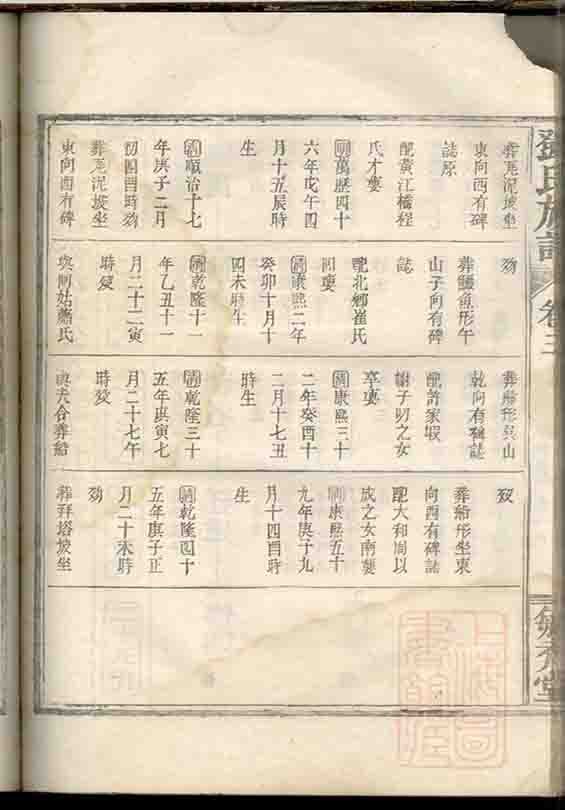 鄧氏族譜
卷三
葬尾泥坡坐
東向酉有碑
誌原
配黃江橋程
氏才嬰
明萬歷四十
六年戊午四
月十五辰時
生
清順治十七
年庚子二月
初四酉時歿
葬尾泥坡坐
東向酉有碑
歿
葬鱷魚形午
山子向有碑
誌
配北鄉崔氏
四嬰
清康熙二年
癸卯十月十
四未時生
清乾隆十一
年乙丑十一
月二十二寅
時歿
與阿姑蕭氏
葬船形巽山
乾向有碑誌
配許家
謝子明之女
卒嬰
清康熙三十
二年癸酉十
二月十七丑
時生
清乾隆三十
五年庚寅七
月二十七午
時歿
與夫合葬船
歿
葬船形坐東
向酉有碑誌
配大和周以
成之女南嬰
清康熙五十
九年庚子九
月十四酉時
生
清乾隆四十
五年庚子正
月二十未時
歿
葬拜塔坡坐
堂
上海圖
書館藏